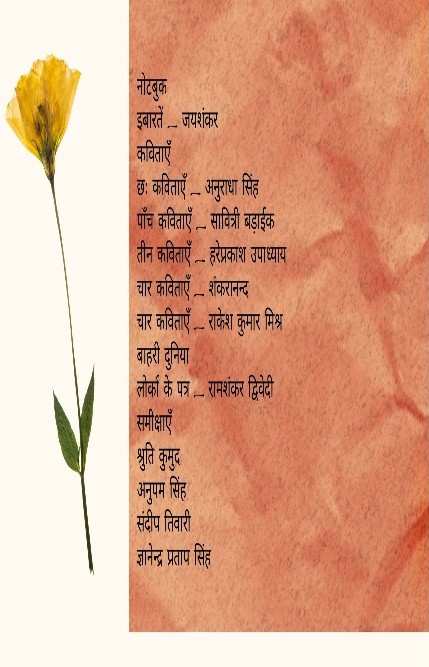 नोटबुक
इबारतें _ जयशंकर
कविताएँ
छः कविताएँ _ अनुराधा सिंह
पाँच कविताएँ _ सावित्री बड़ाईक
तीन कविताएँ _ हरेप्रकाश उपाध्याय
चार कविताएँ _ शंकरानन्द
चार कविताएँ _ राकेश कुमार मिश्र
बाहरी दुनिया
लोर्का के पत्र _ रामशंकर द्विवेदी
समीक्षाएँ
श्रुति कुमुद
अनुपम सिंह
संदीप तिवारी
ज्ञानेन्द्र प्रताप सिंह